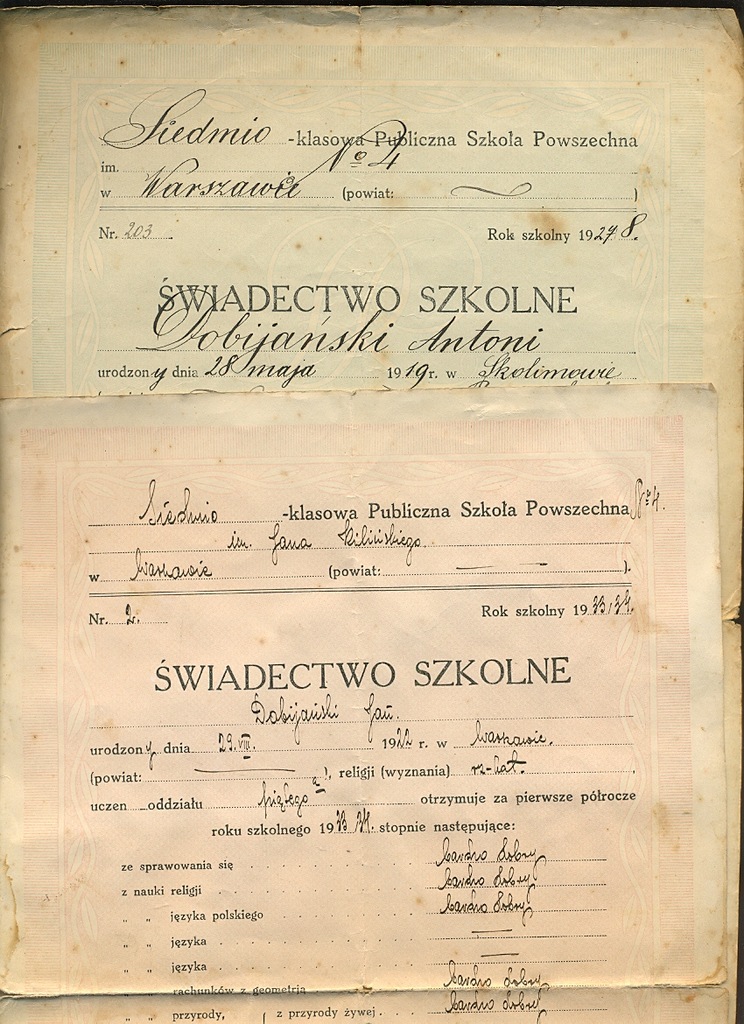 Siedmio -klasowa Publiczna Szkoła Powszechna
im. № 4
w Warszawie (powiat: )
Nr. 203 Rok szkolny 1927/8.
ŚWIADECTWO SZKOLNE
Dobijański Antoni
urodzony dnia 28 maja 1919 r. w Skolimowie
Siedmio -klasowa Publiczna Szkoła Powszechna № 4.
im. Jana Kilińskiego.
w Warszawie (powiat: — — ).
Nr. 2. Rok szkolny 1933/34.
ŚWIADECTWO SZKOLNE
Dobijański Jan.
urodzony dnia 29.VIII. 1922 r. w Warszawie.
(powiat: — ), religji (wyznania) rz-kat.
uczeń oddziału piątego a otrzymuje za pierwsze półrocze
roku szkolnego 1933/34. stopnie następujące:
ze sprawowania się bardzo dobry
z nauki religji bardzo dobry
„ „ języka polskiego bardzo dobry
„ „ języka —
„ „ języka —
„ „ rachunków z geometrją bardzo dobry
„ „ przyrody, z przyrody żywej bardzo dobry